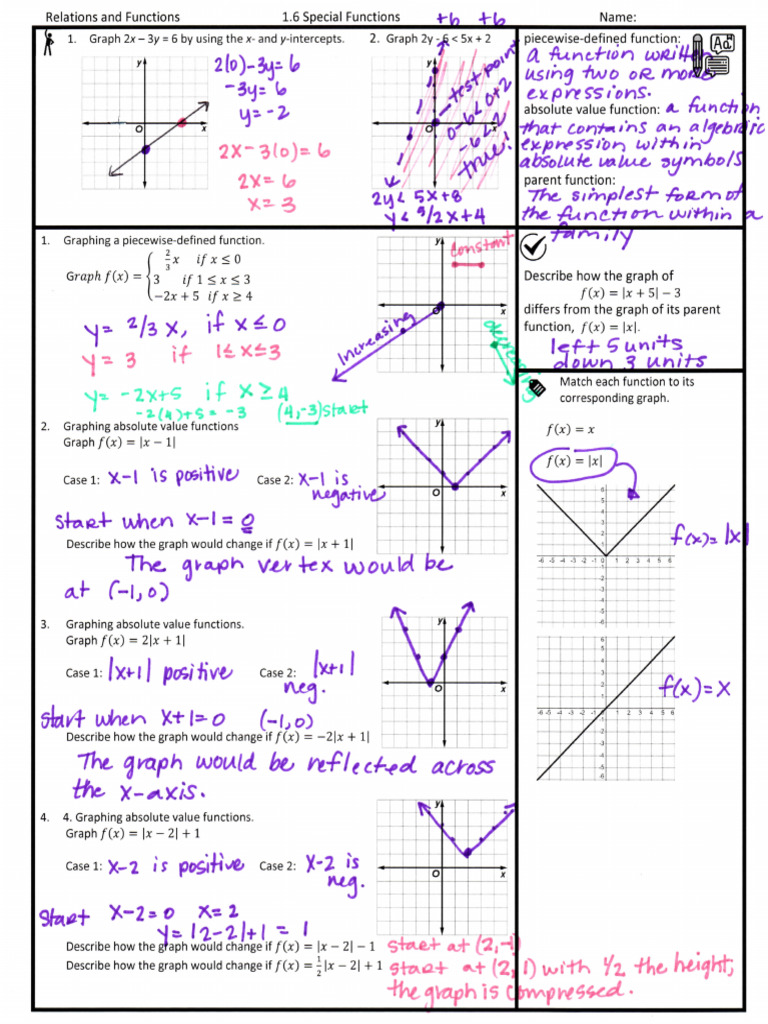 Relations and Functions 1.6 Special Functions Name:
+6 +6
1. Graph 2x – 3y = 6 by using the x- and y-intercepts.
2(0)-3y=6
-3y=6
y=-2
2x-3(0)=6
2x=6
x=3
2. Graph 2y - 6 < 5x + 2
test point
0-6<0+2
-6<2
true!
2y < 5x+8
y < 5/2x+4
piecewise-defined function:
a function written
using two or more
expressions.
absolute value function: a function
that contains an algebraic
expression within
absolute value symbols
parent function:
The simplest form of
the function within a
family
1. Graphing a piecewise-defined function.
Graph f(x) = { 2/3 x if x ≤ 0
3 if 1 ≤ x ≤ 3
−2x + 5 if x ≥ 4
y= 2/3 x, if x≤0
y= 3 if 1≤x≤3
y= -2x+5 if x≥4
-2(4)+5= -3 (4,-3) start
constant
y
x
increasing
decreasing
Describe how the graph of
f(x) = |x + 5| − 3
differs from the graph of its parent
function, f(x) = |x|.
left 5 units
down 3 units
2. Graphing absolute value functions
Graph f(x) = |x − 1|
Case 1: x-1 is positive Case 2: x-1 is
negative
Start when x-1=0
Describe how the graph would change if f(x) = |x + 1|
The graph vertex would be
at (-1,0)
y
O
x
Match each function to its
corresponding graph.
f(x) = x
f(x) = |x|
f(x)= |x|
f(x)=x
3. Graphing absolute value functions.
Graph f(x) = 2|x + 1|
Case 1: |x+1| positive Case 2: |x+1|
neg.
start when x+1=0 (-1,0)
Describe how the graph would change if f(x) = −2|x + 1|
The graph would be reflected across
the x-axis.
y
O
x
4. 4. Graphing absolute value functions.
Graph f(x) = |x − 2| + 1
Case 1: x-2 is positive Case 2: x-2 is
neg.
Start x-2=0 x=2
y=|2-2|+1=1
y
O
x
Describe how the graph would change if f(x) = |x − 2| − 1 start at (2,-1)
Describe how the graph would change if f(x) = 1/2|x − 2| + 1 start at (2,1) with 1/2 the height,
the graph is compressed.